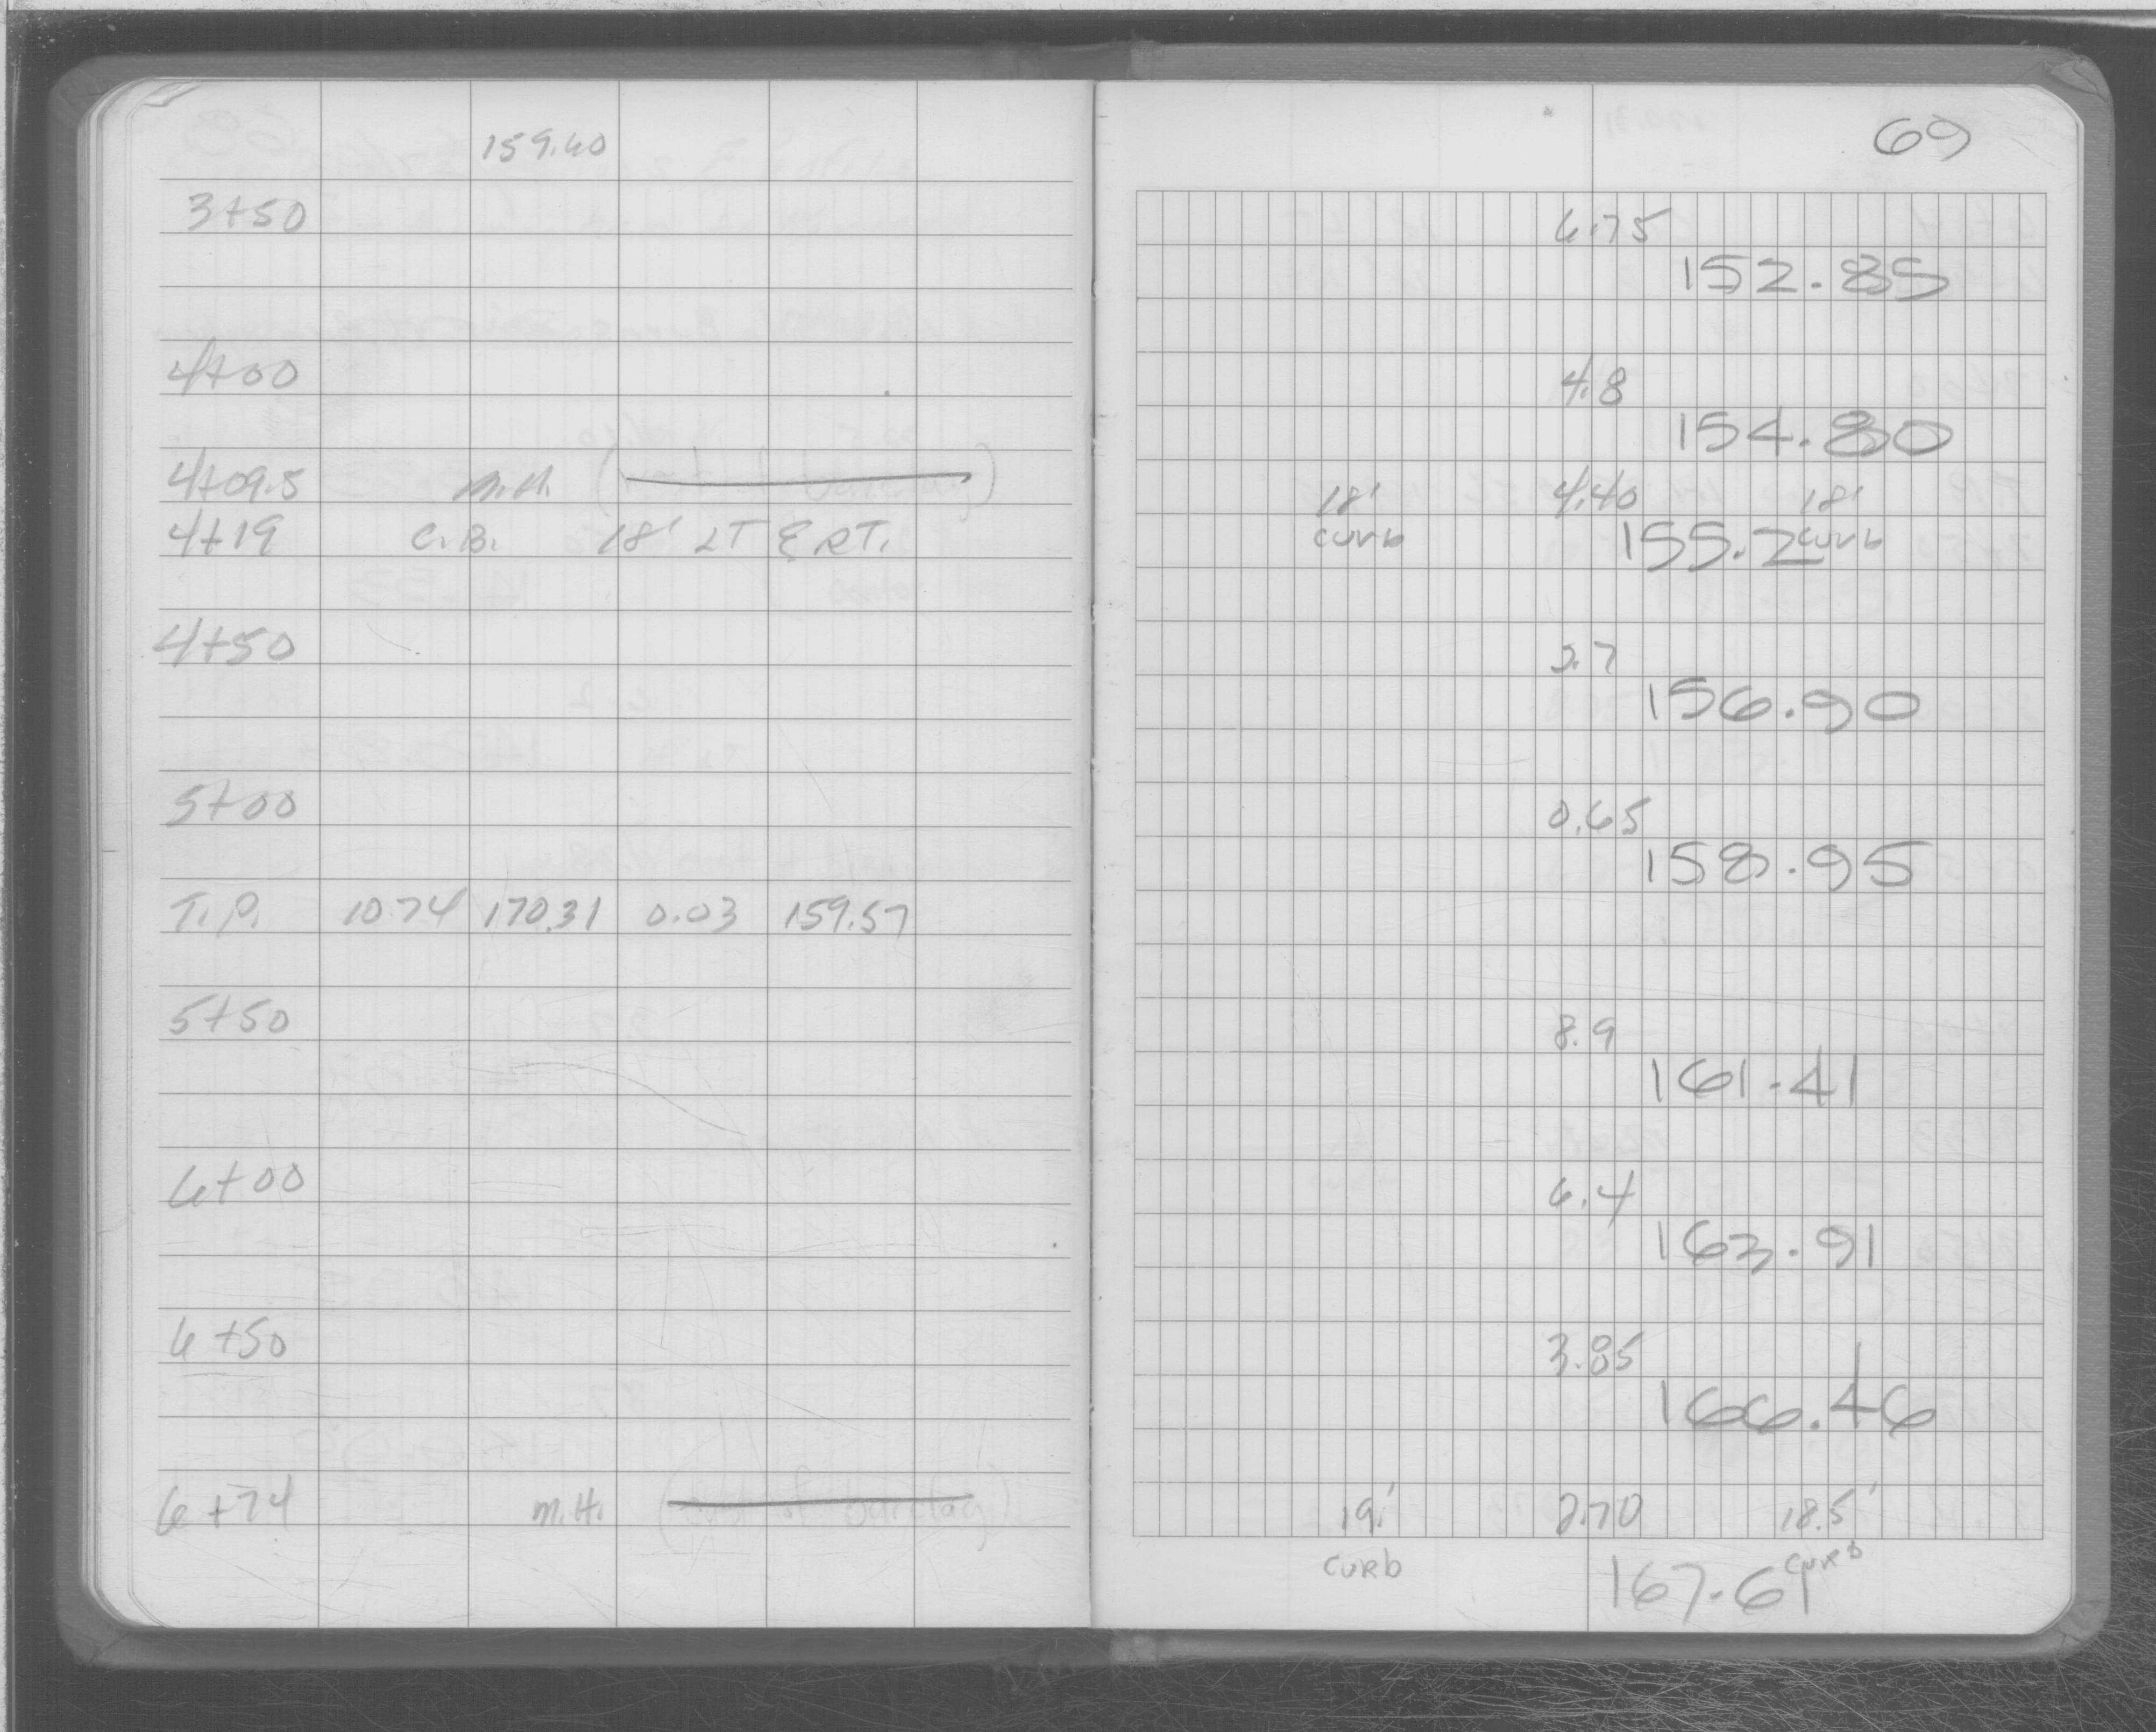 159.60
3+50
4+00
4+09.5 M.H.
4+19 C.B. 18' LT & RT.
4+50
5+00
T.P. 10.74 170.31 0.03 159.57
5+50
6+00
6+50
6+74 M.H. (east of Barclay)
69
6.75
152.85
4.8
154.80
18' 4.40 18'
curb 155.2 curb
2.7
156.90
0.65
158.95
8.9
161.41
6.4
163.91
3.85
166.46
19' 2.70 18.5'
curb 167.61 curb